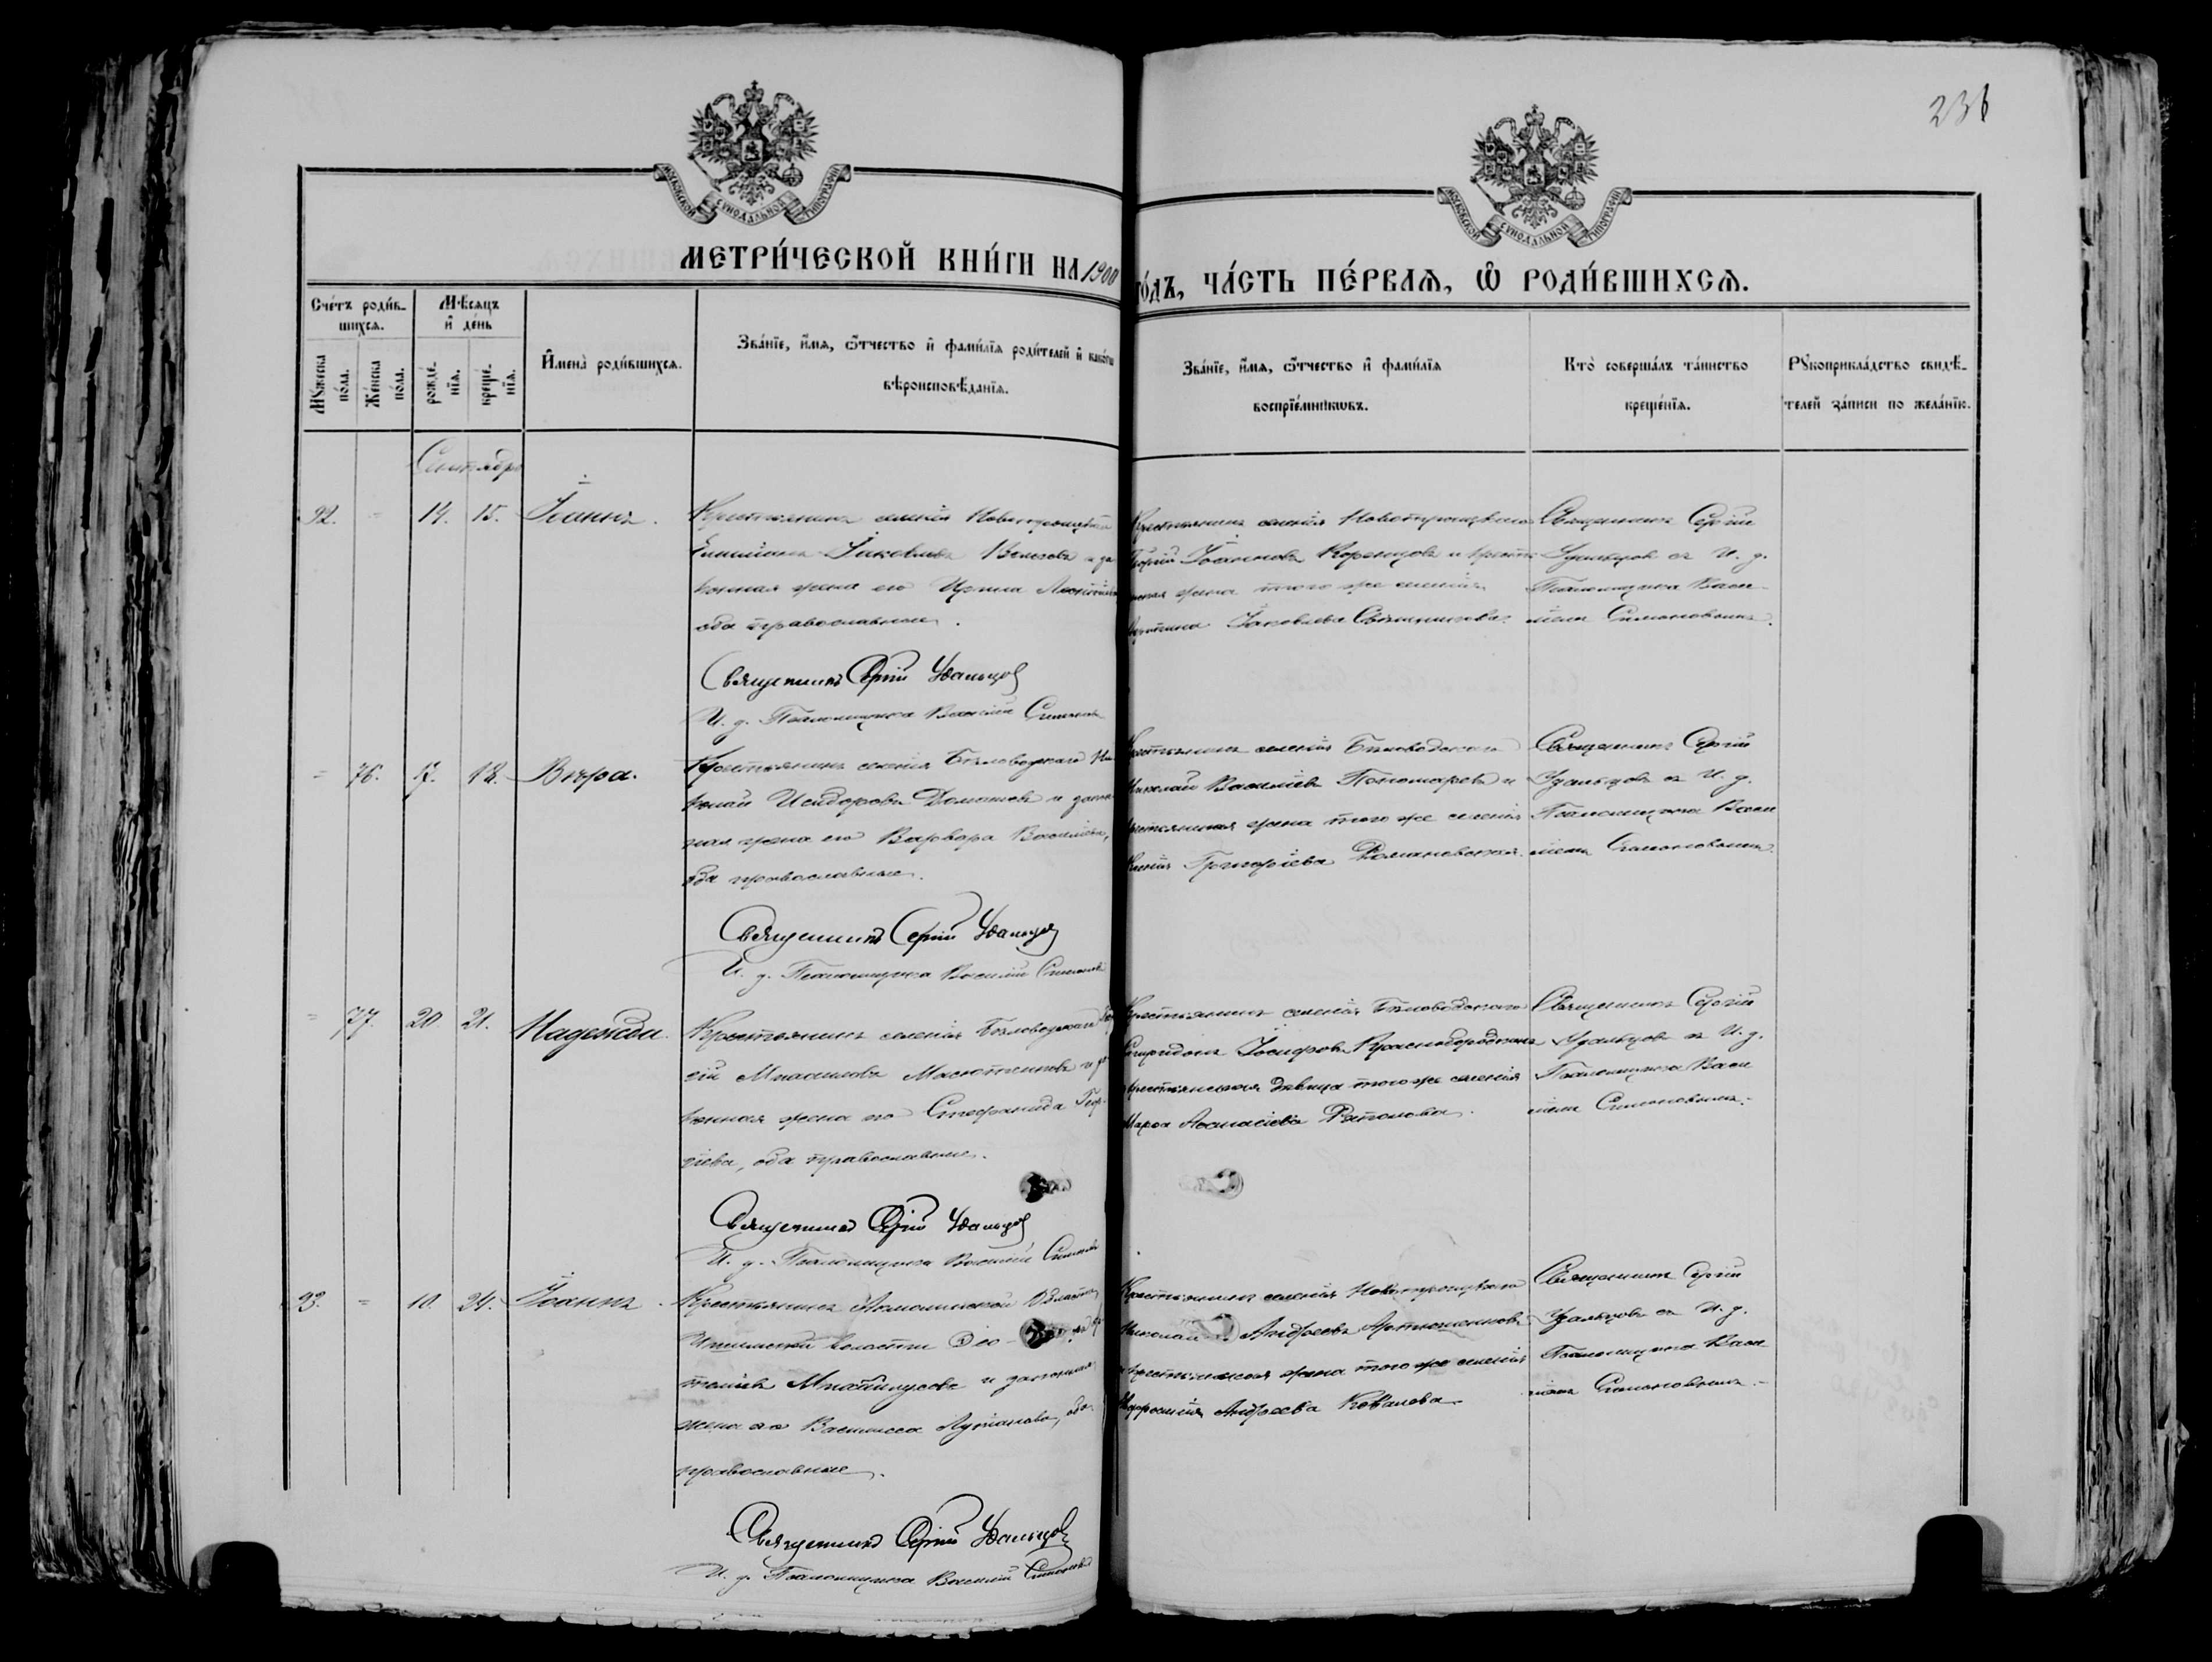 236
МОСКОВСКОЙ СУНОДАЛЬНОЙ ТИПОГРАФИИ
МОСКОВСКОЙ СУНОДАЛЬНОЙ ТИПОГРАФИИ
МЕТРИ́ЧЕСКОЙ КНИ́ГИ НА 1900
ГО́ДЪ, ЧА́СТЬ ПЕ́РВАѦ, Ѿ РОДИ́ВШИХСѦ.
Сче́тъ роди́в-
шихсѧ.
Мꙋ́жеска
по́ла.
Же́нска
по́ла.
Мѣ́сѧцъ
и҆ де́нь
рожде́-
нїѧ.
креще́-
нїѧ.
И҆мена̀ роди́вшихсѧ.
Зва́нїе, и҆́мѧ, ѻ҆́тчество и҆ фами́лїѧ роди́телей и҆ како́гѡ
вѣроисповѣ́данїѧ.
Зва́нїе, и҆́мѧ, ѻ҆́тчество и҆ фами́лїѧ
воспрїе́мникѡвъ.
Кто̀ соверша́лъ та́инство
креще́нїѧ.
Рꙋкоприкла́дство свидѣ́-
телей за́писи по жела́нїю.
Сентябрь
92. = 14. 15. Іоаннъ.
Крестьянинъ селенія Новотроицкаго
Іаковлевъ и за
конная жена его Ирина
оба православные.
Священникъ Сергій Удальцовъ
И. д. Псаломщика Василій
Крестьянинъ селенія Новотроицкаго
Георгій Іоанновъ и крестья
нская жена того же селенія
Іаковлева
Священникъ Сергій
Удальцовъ съ И. д.
Псаломщика Васи-
ліемъ Симоновымъ.
= 76. 17. 18. Вѣра.
Крестьянинъ селенія Бѣловодскаго Ни
колай Исидоровъ и закон
ная жена его Варвара Василіева,
оба православные.
Священникъ Сергій Удальцовъ
И. д. Псаломщика Василій Симоновъ
Крестьянинъ селенія Бѣловодскаго
Николай Василіевъ Пономаревъ и
крестьянская жена того же селенія
Григоріева Романовская.
Священникъ Сергій
Удальцовъ съ И. д.
Псаломщика Васи
ліемъ Симоновымъ.
= 77. 20. 21. Надежда.
Крестьянинъ селенія Бѣловодскаго
и за
конная жена его Стефанида Геор-
гіева, оба православные.
Священникъ Сергій Удальцовъ
И. д. Псаломщика Василій
Крестьянинъ селенія Бѣловодскаго
Спиридонъ Іосифовъ
крестьянская дѣвица того же селенія
Марѳа Аѳанасіева
Священникъ Сергій
Удальцовъ съ И. д.
Псаломщика Васи
ліемъ Симоновымъ.
93. = 10. 24. Іоаннъ.
Крестьянинъ Акмолинской Области
волости
и законная
жена его Василисса оба
православные.
Священникъ Сергій Удальцовъ
И. д. Псаломщика Василій Симоновъ
Крестьянинъ селенія Новотроицкаго
Николай Андреевъ Артюшенковъ
и крестьянская жена того же селенія
Андреева Ковалева.
Священникъ Сергій
Удальцовъ съ И. д.
Псаломщика Васи
ліемъ Симоновымъ.